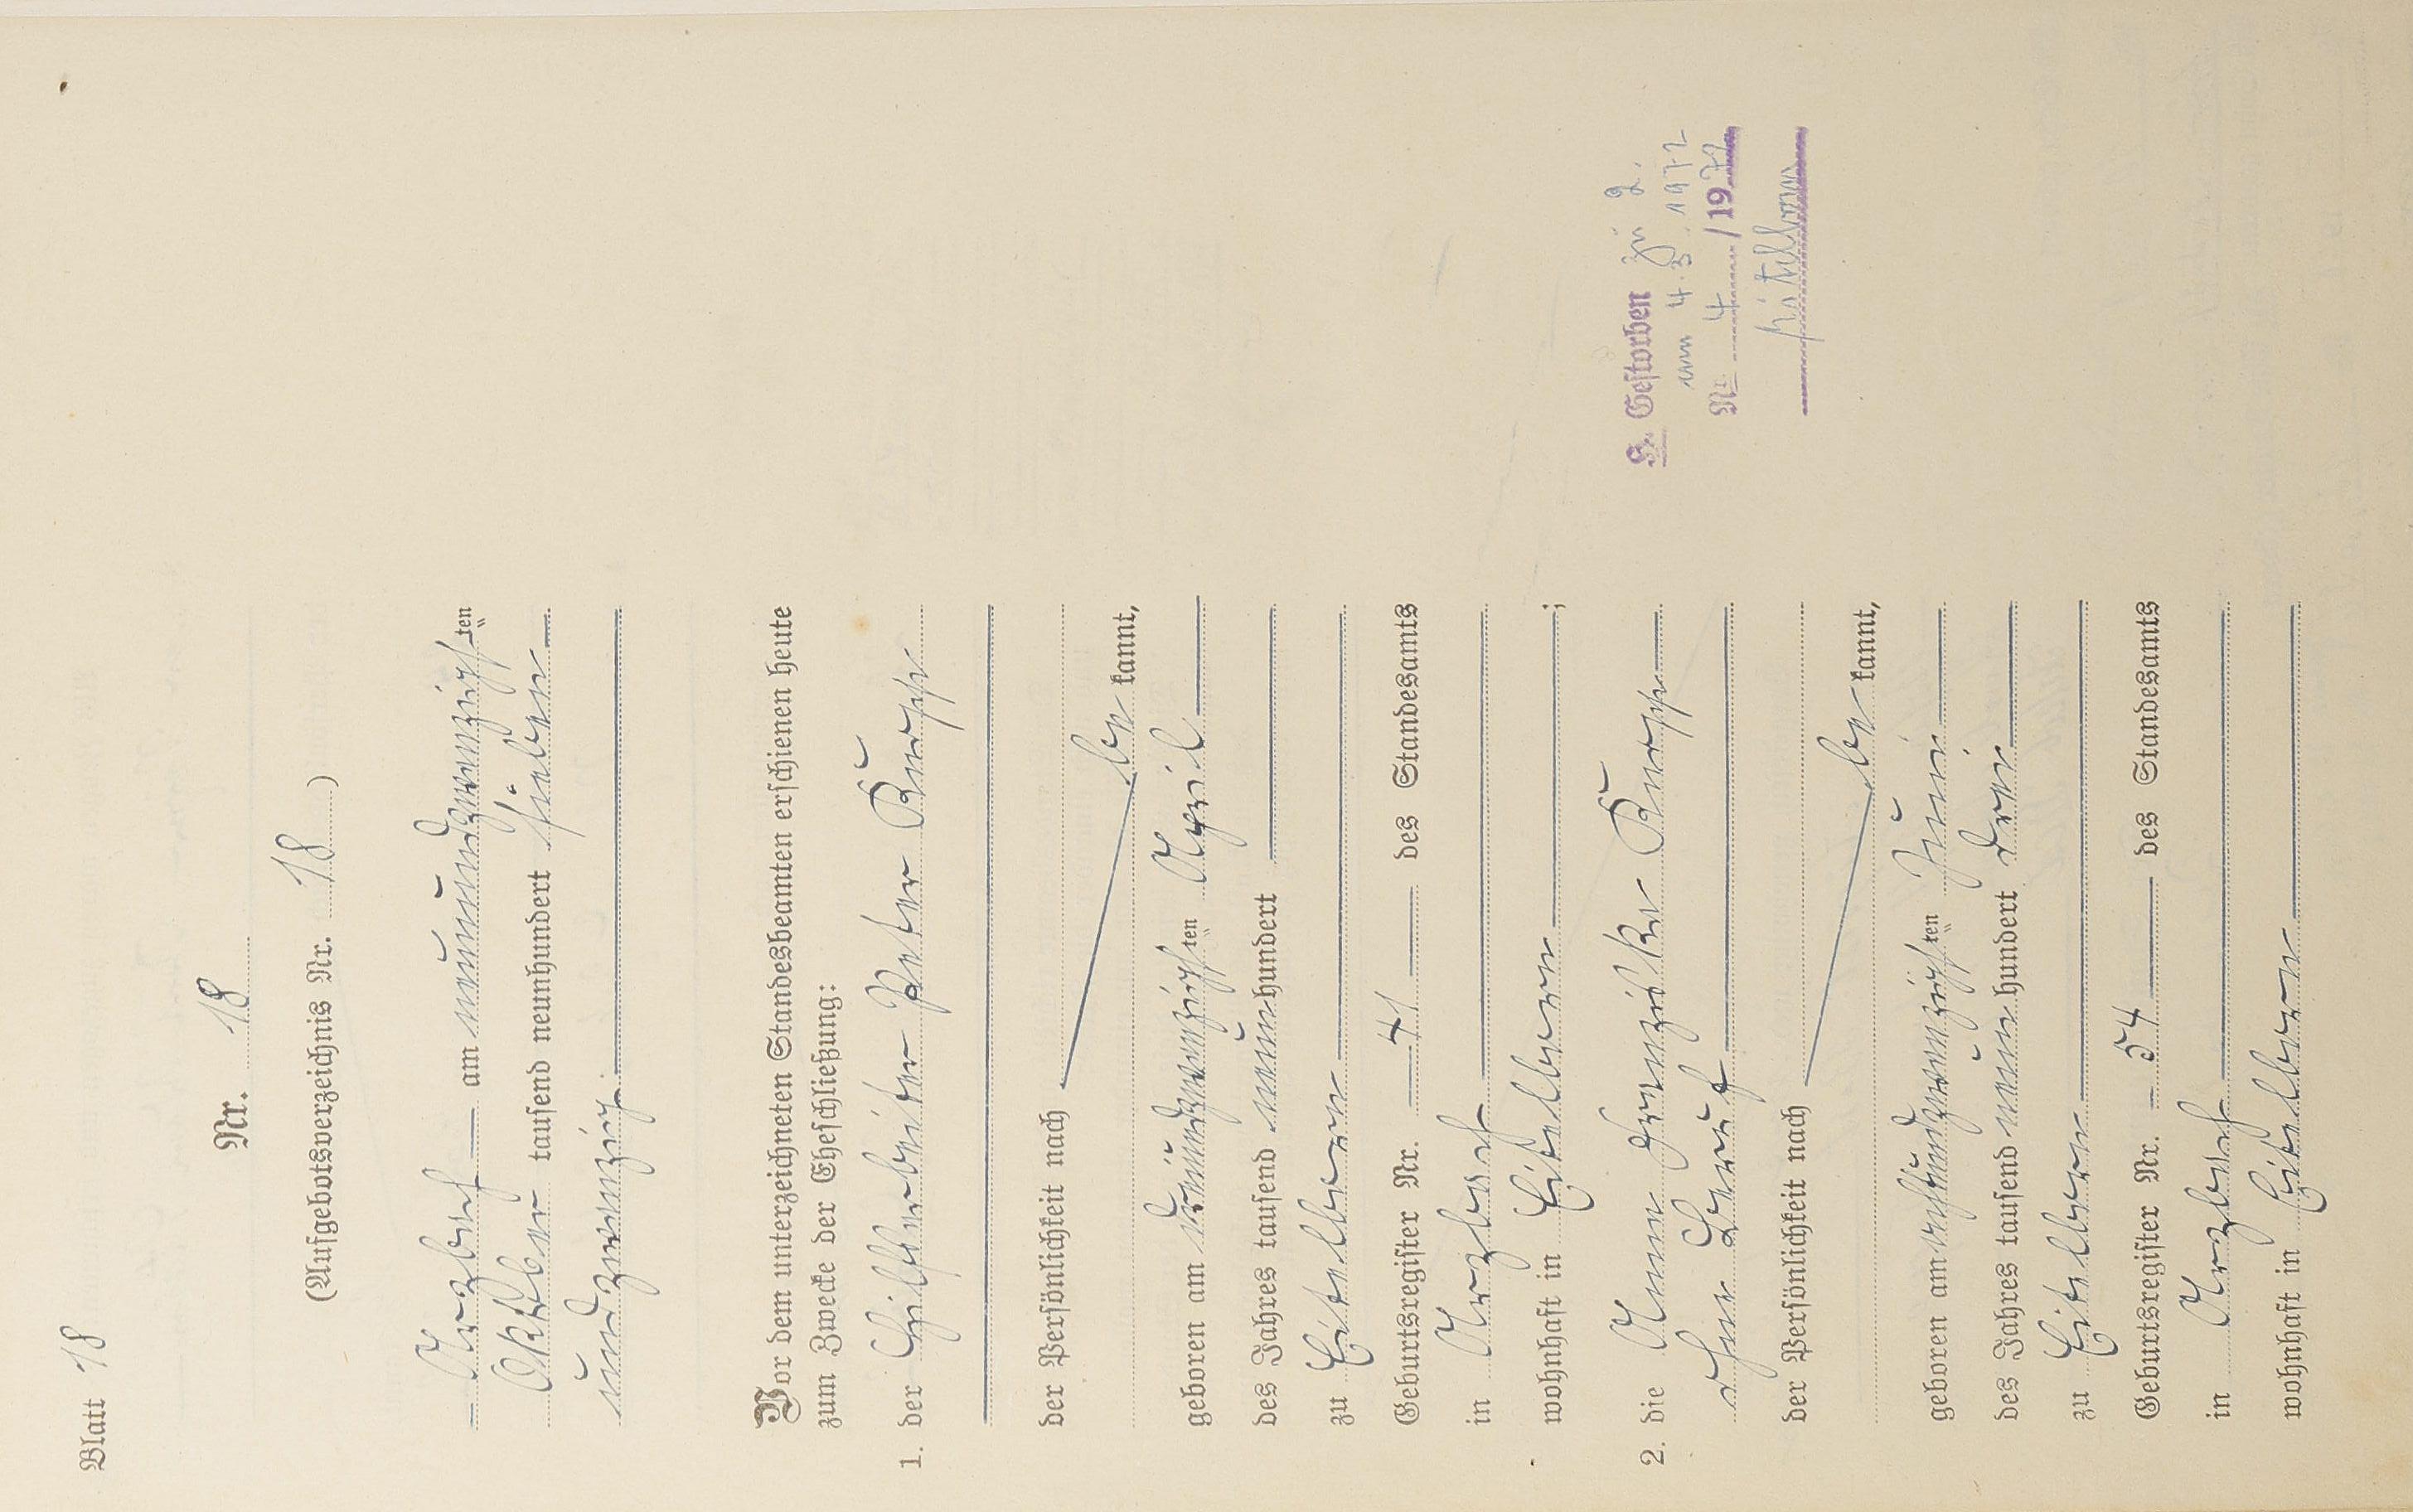 Blatt 18
Nr. 18
(Aufgebotsverzeichnis Nr. 18)
Arzbach am neunundzwanzigsten
Oktober tausend neunhundert sieben
und zwanzig.
Vor dem unterzeichneten Standesbeamten erschienen heute
zum Zwecke der Eheschließung:
1. der Hilfsarbeiter Peter
der Persönlichkeit nach
be kannt,
geboren am dreiundzwanzigsten April
des Jahres tausend neun hundert
zu Eitelborn
Geburtsregister Nr. 41 des Standesamts
in Arzbach
wohnhaft in Eitelborn;
2. die Anna Franziska
ohne Beruf
der Persönlichkeit nach
be kannt,
geboren am achtundzwanzigsten Juni
des Jahres tausend neun hundert drei
zu Eitelborn
Geburtsregister Nr. 54 des Standesamts
in Arzbach
wohnhaft in Eitelborn
H. Gestorben zu 2.
am 4.3.1972
Nr. 4 / 1972
Eitelborn